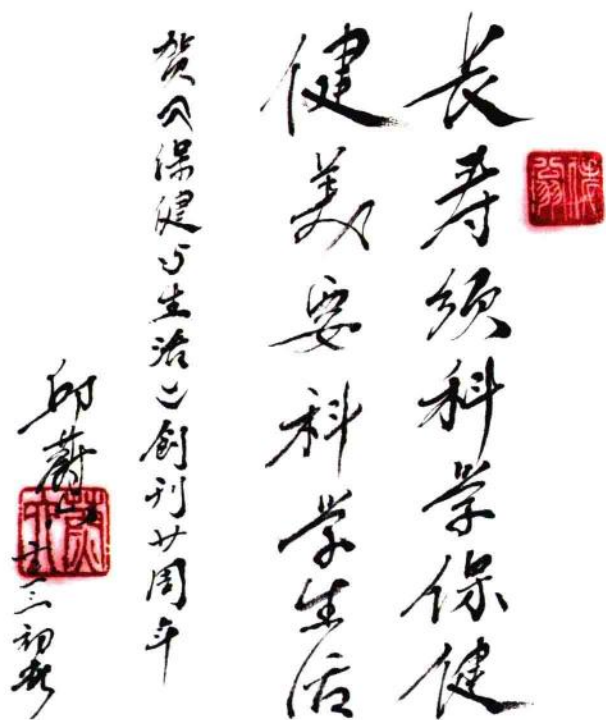 长寿须科学保健
健美要科学生活
贺《保健与生活》创刊廿周年
邱蔚六
初春